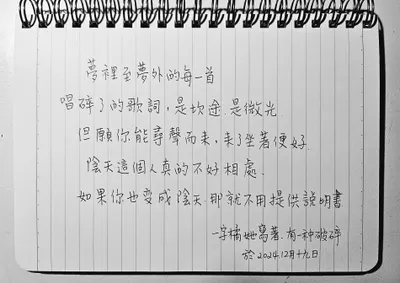 夢裡至夢外的每一首
唱碎了的歌詞,是坎途是微光
但願你能尋聲而來,來了坐著便好
陰天這個人真的不好相處.
如果你也變成陰天.那就不用提供說明書
一字橘她寫著.有一种破碎
於2024.12月十九日